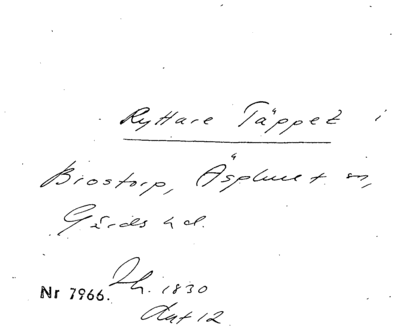 Ryttare Täppet i
Brostorp, Äsphult sn,
Gärds hd.
Nr 7966. Jh. 1830
Aut 12